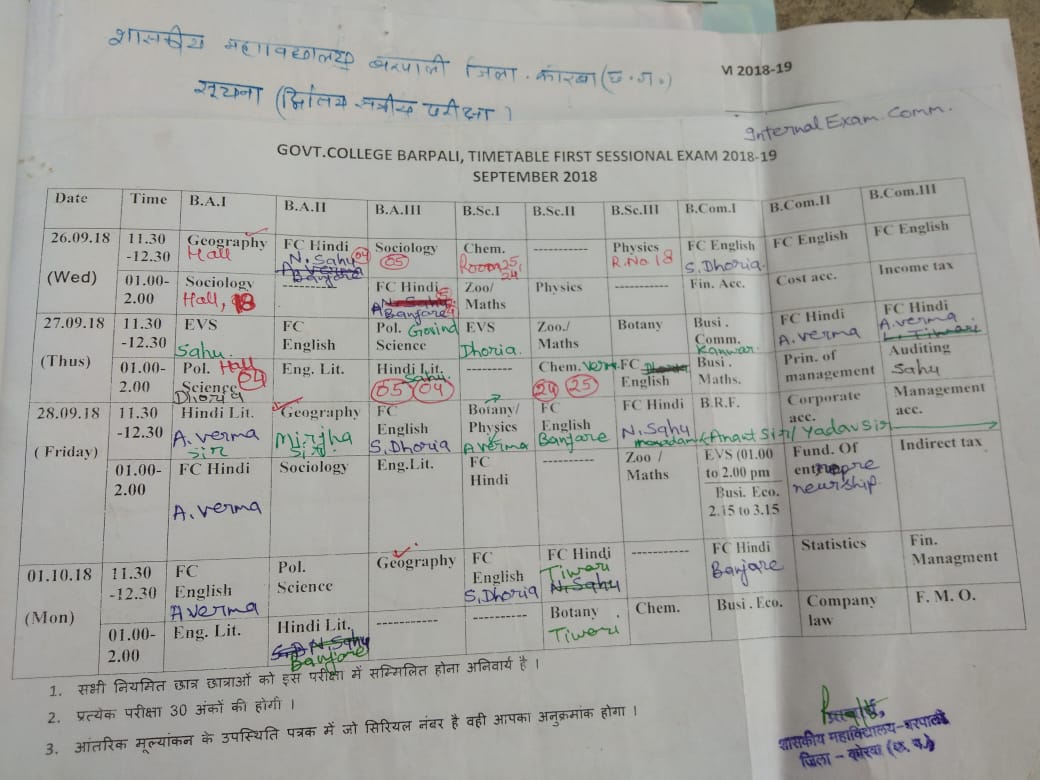 शासकीय महाविद्यालय बरपाली जिला . कोरबा (छ.ग.)
VI 2018-19
सूचना ( सत्रीय परीक्षा )
Internal Exam. Comm.
GOVT.COLLEGE BARPALI, TIMETABLE FIRST SESSIONAL EXAM 2018-19
SEPTEMBER 2018
Date Time B.A.I B.A.II B.A.III B.Sc.I B.Sc.II B.Sc.III B.Com.I B.Com.II B.Com.III
26.09.18 11.30 Geography FC Hindi Sociology Chem. ---------- Physics FC English FC English FC English
-12.30 Hall N. Sahu 04 05 Room 25, 24 R.No 18 S. Dhoria
A. Verma
Banjare
(Wed) 01.00- Sociology ---------- FC Hindi Zoo/ Physics Fin. Acc. Cost acc. Income tax
2.00 Hall, 18 N. Sahu Maths
Banjare
27.09.18 11.30 EVS FC Pol. Govind EVS Zoo./ Botany Busi . FC Hindi FC Hindi
-12.30 Sahu English Science Dhoria. Maths Comm. A. verma A. verma
Kanwar L. Tiwari
(Thus) 01.00- Pol. Hall Eng. Lit. Hindi Lit. --------- Chem. Verma FC Busi . Prin. of Auditing
2.00 Science 04 Sahu 24 25 English Maths. management Sahu
Dhoria 05 04
28.09.18 11.30 Hindi Lit. Geography FC Botany/ FC FC Hindi B.R.F. Corporate Management
-12.30 A. verma Mirjha English Physics English N. Sahu acc. acc.
sir Sir S. Dhoria A verma Banjare madam (Anant Sir/ Yadav Sir
( Friday) 01.00- FC Hindi Sociology Eng.Lit. FC ---------- Zoo / EVS (01.00 Fund. Of Indirect tax
2.00 A. verma Hindi Maths to 2.00 pm entrepre
Busi. Eco. neurship.
2.15 to 3.15
01.10.18 11.30 FC Pol. Geography FC FC Hindi ----------- FC Hindi Statistics Fin.
-12.30 English Science English Tiwari Banjare Managment
A verma S. Dhoria N. Sahu
(Mon) 01.00- Eng. Lit. Hindi Lit. ------------ ---------- Botany Chem. Busi . Eco. Company F. M. O.
2.00 N. Sahu Tiwari law
Banjare
1. सभी नियमित छात्र छात्राओं को इस परीक्षा में सम्मिलित होना अनिवार्य है ।
2. प्रत्येक परीक्षा 30 अंकों की होगी ।
3. आंतरिक मूल्यांकन के उपस्थिति पत्रक में जो सिरियल नंबर है वही आपका अनुक्रमांक होगा ।
शासकीय महाविद्यालय-बरपाली
जिला - कोरबा (छ. ग.)